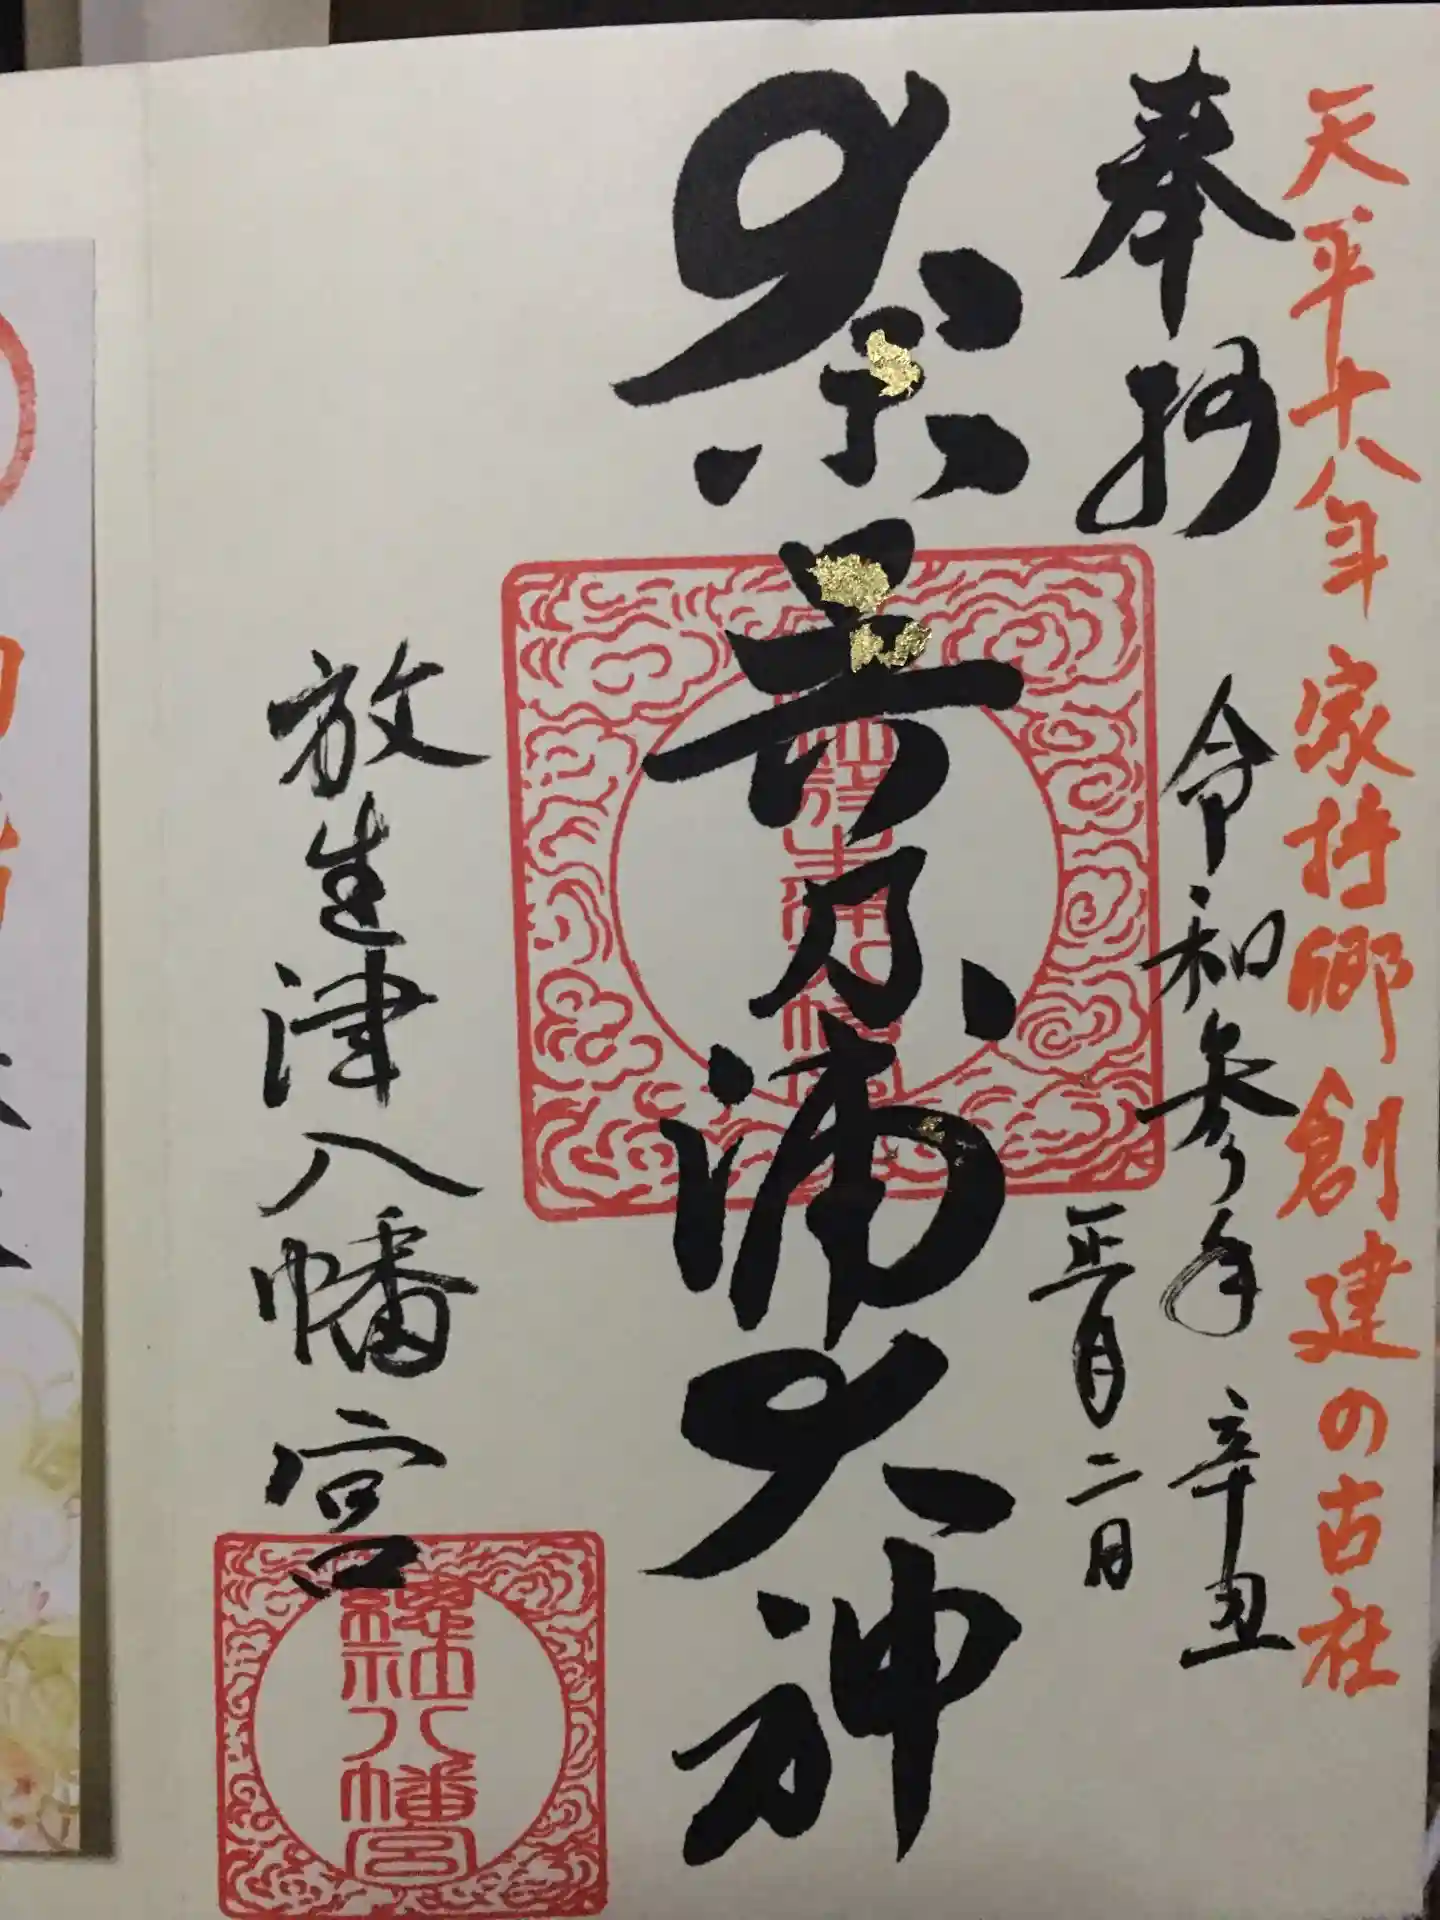 天平十八年 家持郷 創建の古社
奉拝
令和参年 辛丑
正月二日
奈呉乃浦大神
放生津八幡宮
八幡宮